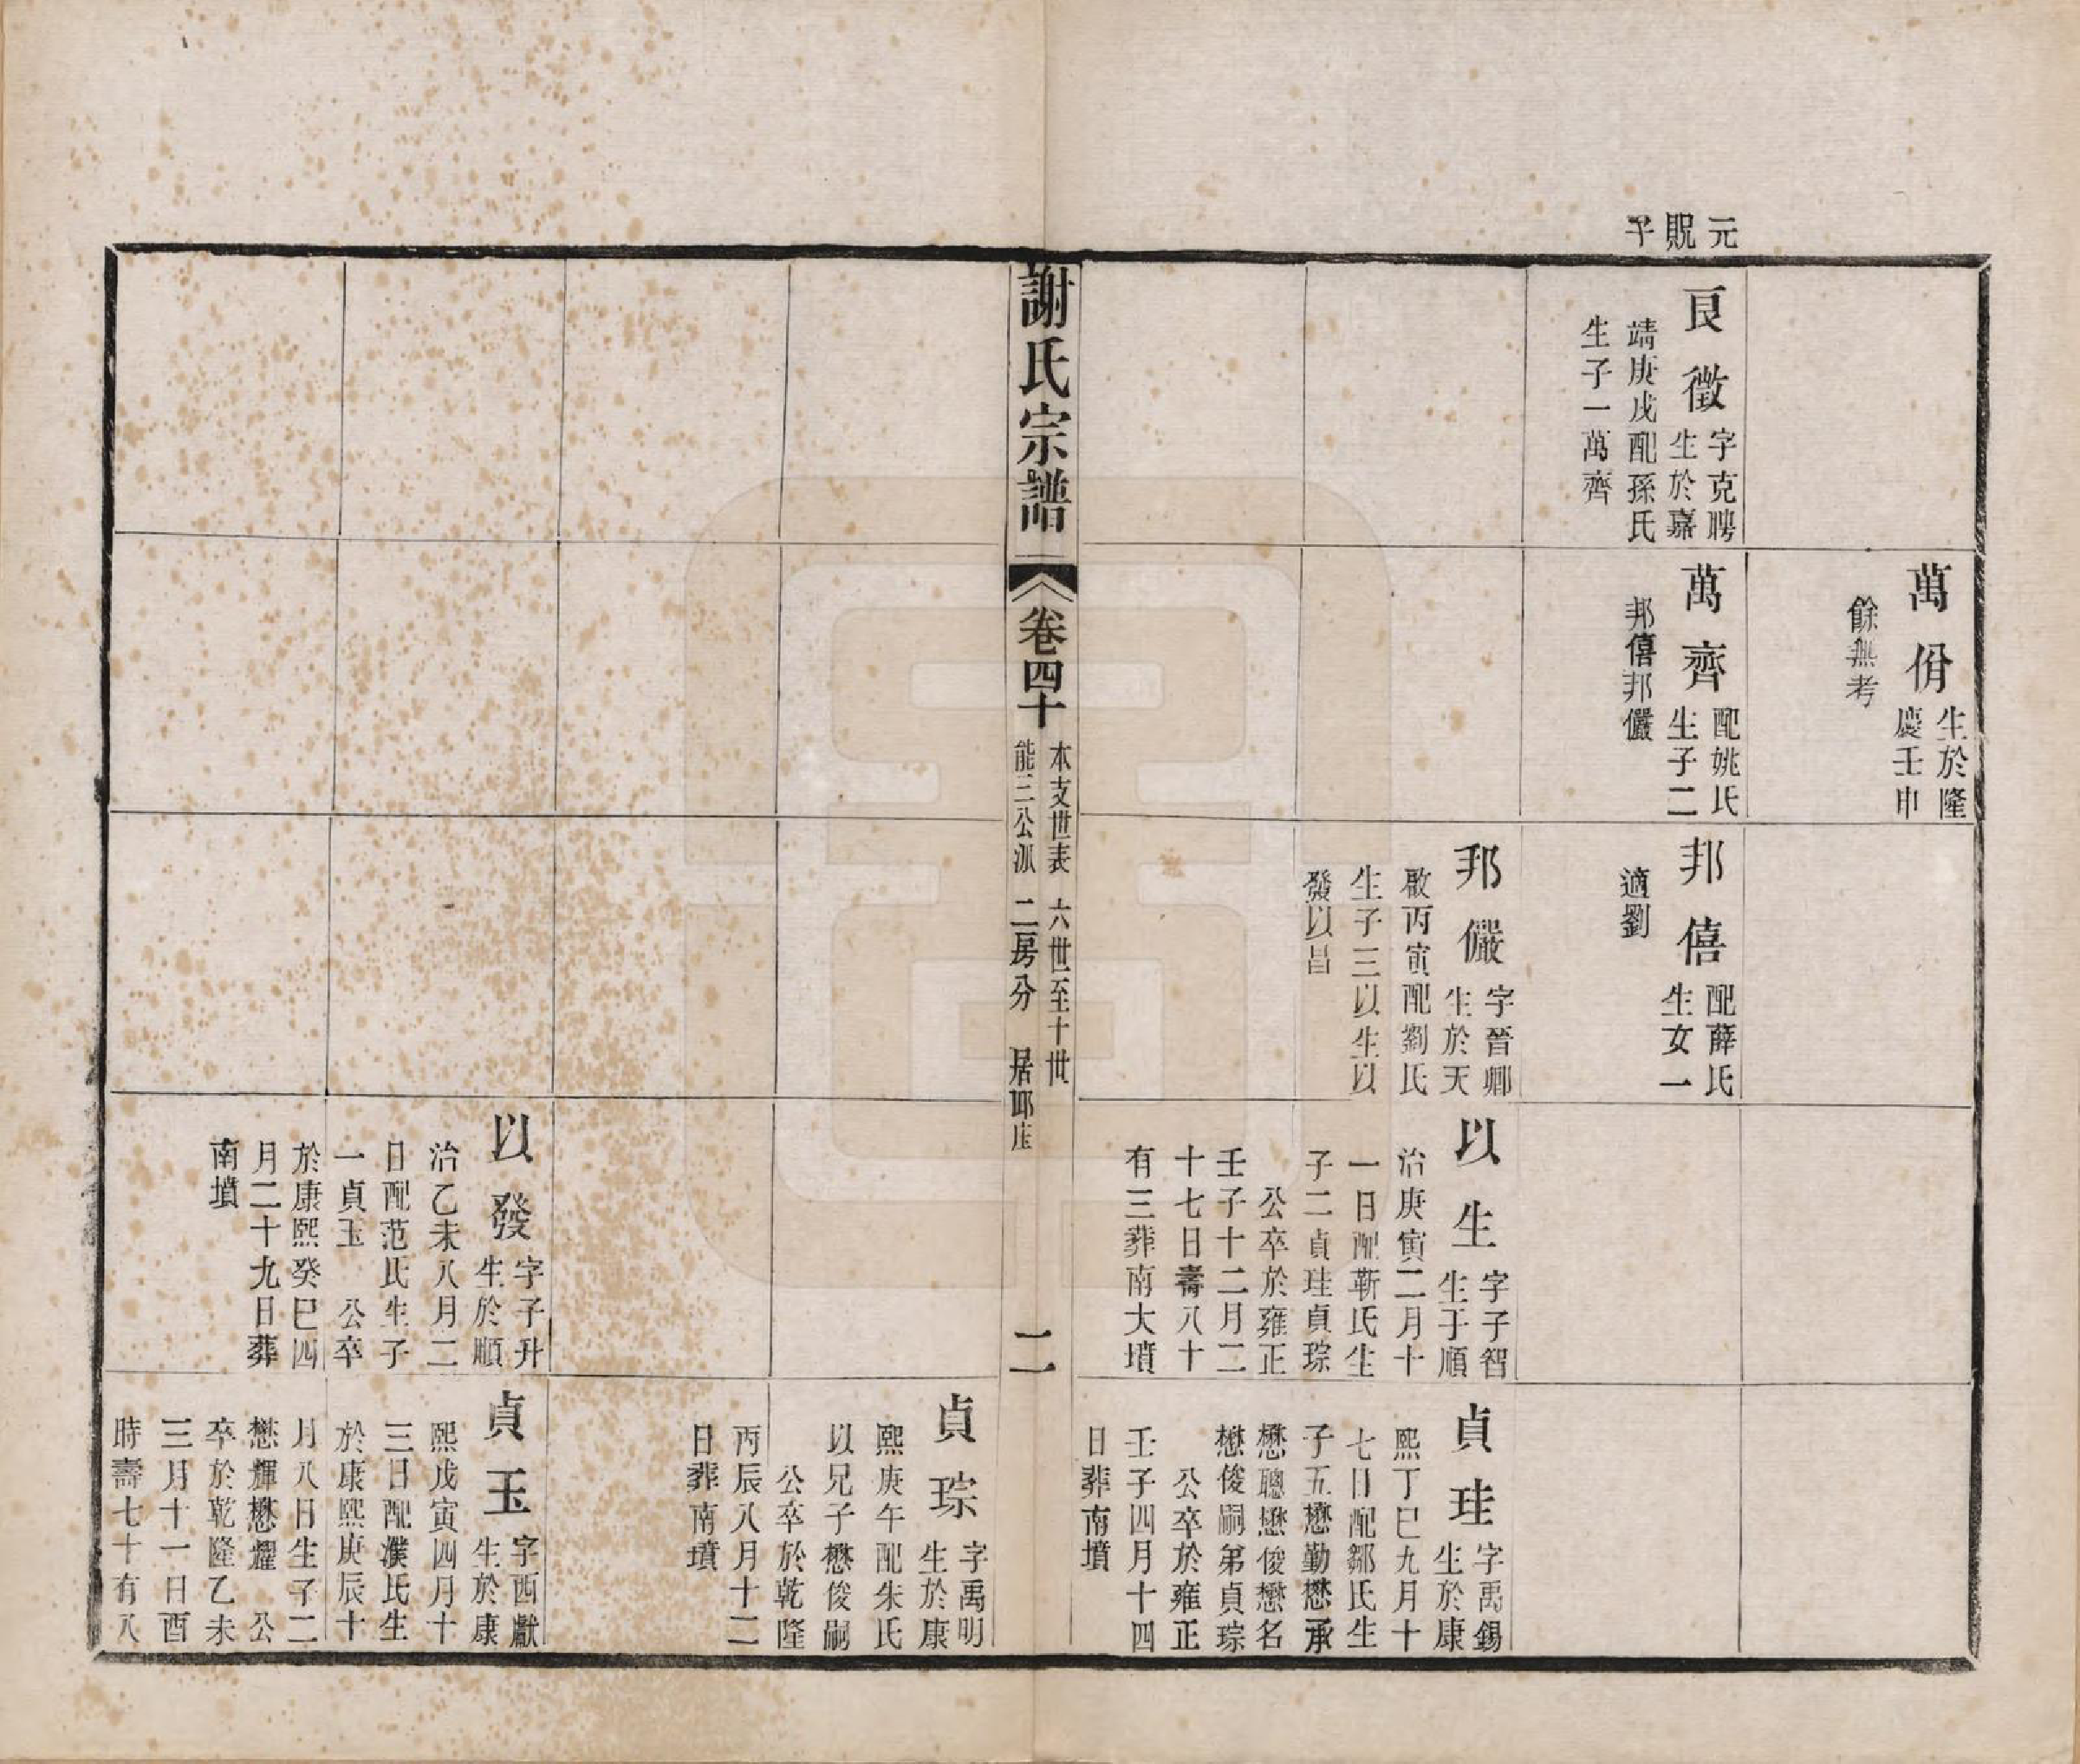 元
貺
子
萬佾
生於隆
慶壬申
餘無考
良徵
字克聘
生於嘉
靖庚戌配孫氏
生子一萬齊
萬齊
配姚氏
生子二
邦僖邦儼
邦僖
配薛氏
生女一
適劉
邦儼
字晉卿
生於天
啟丙寅配劉氏
生子三以生以
發以昌
以生
字子智
生于順
治庚寅二月十
一日配靳氏生
子二貞珪貞琮
公卒於雍正
壬子十二月二
十七日壽八十
有三葬南大墳
貞珪
字禹錫
生於康
熙丁巳九月十
七日配鄒氏生
子五懋勤懋承
懋聰懋俊懋名
懋俊嗣弟貞琮
公卒於雍正
壬子四月十四
日葬南墳
謝氏宗譜
卷四十
本支世表 六世至十世
能三公派 二房分 居耶庄
二
貞琮
字禹明
生於康
熙庚午配朱氏
以兄子懋俊嗣
公卒於乾隆
丙辰八月十二
日葬南墳
以發
字子升
生於順
治乙未八月二
日配范氏生子
一貞玉 公卒
於康熙癸巳四
月二十九日葬
南墳
貞玉
字西獻
生於康
熙戊寅四月十
三日配濮氏生
於康熙庚辰十
月八日生子二
懋輝懋耀 公
卒於乾隆乙未
三月十一日酉
時壽七十有八